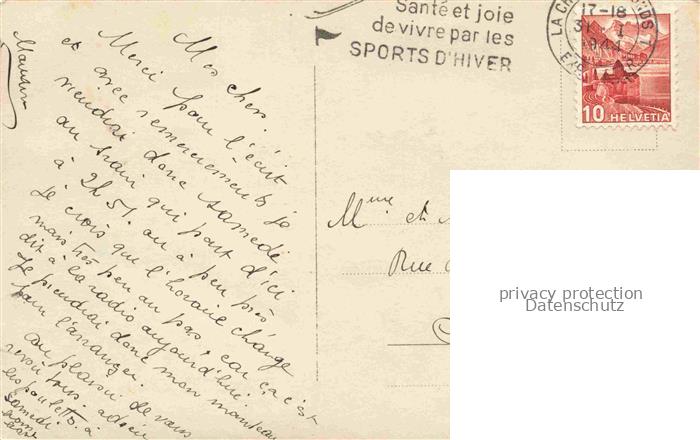 Santé et joie
de vivre par les
SPORTS D'HIVER
LA CH
DS 1
17-18
1944
EX
10 HELVETIA
Mes chers.
Merci pour l'écrit
et avec remerciements je
viendrai donc samedi
au train qui part d'ici
à 2h 51. ou à peu près
Je crois que l'horaire change
mais très peu au pas, car ça c'est
dit à la radio aujourd'hui.
Je prendrai donc mon manteau
pour l'arranger.
Au plaisir de vous
revoir tous. adieu
à
samedi
Mme et
Rue
privacy protection
Datenschutz